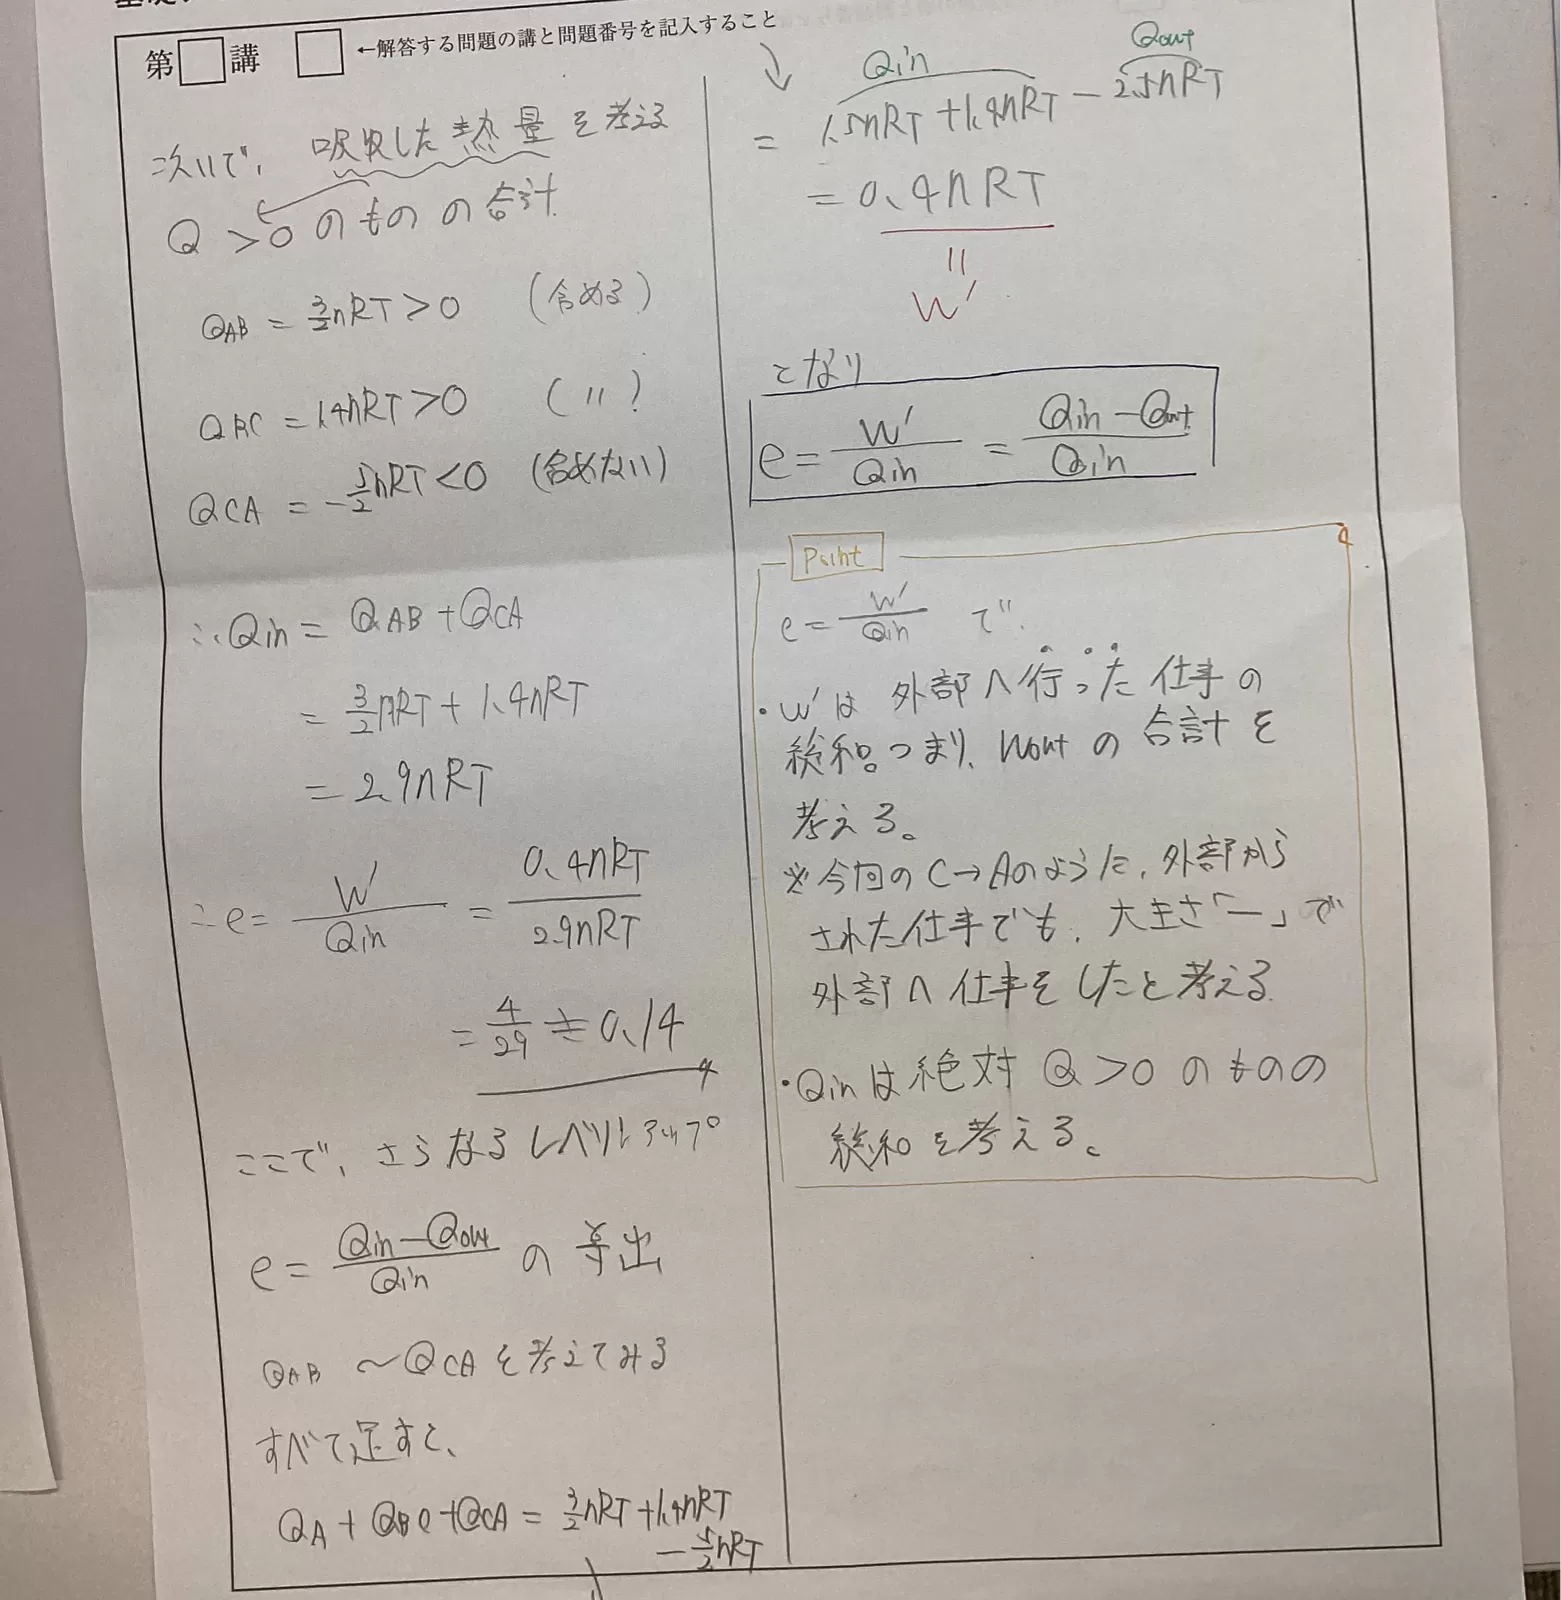 第 講 ←解答する問題の講と問題番号を記入すること
次いで、吸収した熱量を考える
Q>0のものの合計
QAB = 3/2nRT>0 (含める)
QBC = 1.4nRT>0 (〃)
QCA = -5/2nRT<0 (含めない)
∴Qin = QAB+QCA
= 3/2nRT + 1.4nRT
= 2.9nRT
∴e = W'/Qin = 0.4nRT/2.9nRT
= 4/29 ≒ 0.14
ここで、さらなるレベルアップ
e = Qin-Qout/Qin の導出
QAB ~ QCAを考えてみる
すべて足すと、
QA + QBC + QCA = 3/2nRT + 1.4nRT
- 5/2nRT
Qin Qout
= 1.5nRT + 1.4nRT - 2.5nRT
= 0.4nRT
〃
W'
となり
e = W'/Qin = Qin-Qout/Qin
Point
e = W'/Qin で、
・W'は外部へ行った仕事の
総和。つまり、Woutの合計を
考える。
※今回のC→Aのように、外部から
された仕事でも、大きさ「ー」で
外部へ仕事をしたと考える
・Qinは絶対Q>0のものの
総和を考える。